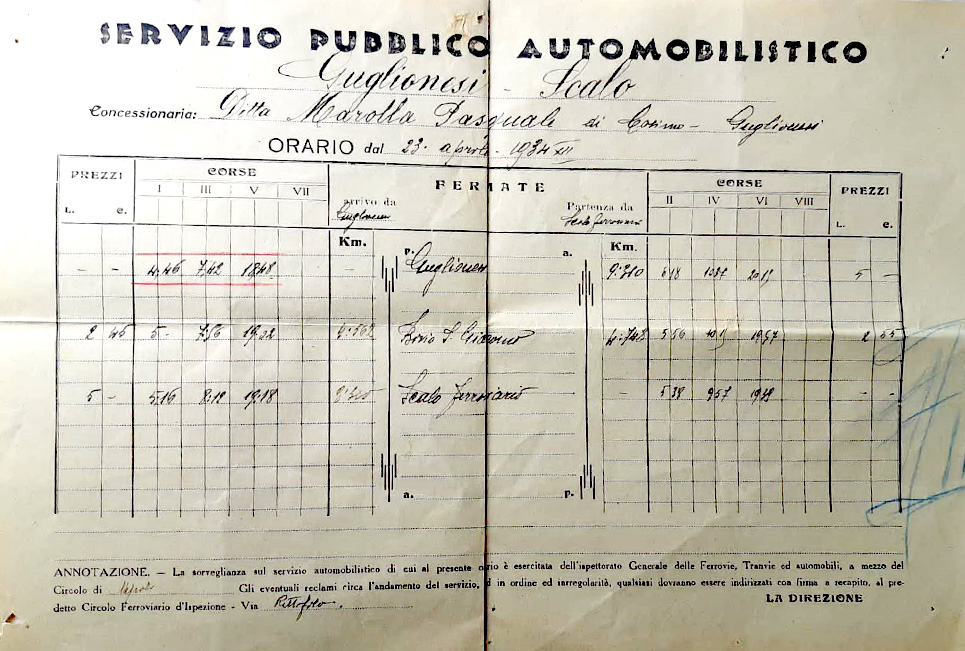 SERVIZIO PUBBLICO AUTOMOBILISTICO
Guglionesi - Scalo
Concessionaria: Ditta Marolla Pasquale di Cosimo - Guglionesi
ORARIO dal 23 aprile 1934 XII
PREZZI CORSE FERMATE CORSE PREZZI
I III V VII arrivo da Guglionesi Partenza da Scalo Ferroviario II IV VI VIII
L. c. L. c.
Km. p. a. Km.
- - 4.46 7.42 18.48 - Guglionesi 9.310 6.18 20.17 5 -
2 45 5 - 7.56 19.02 4.562 Bivio S. Giacomo 4.748 5.56 19.57 2 55
5 - 5.16 8.12 19.18 9.310 Scalo Ferroviario - 5.38 9.57 - -
a. p.
ANNOTAZIONE. - La sorveglianza sul servizio automobilistico di cui al presente orario è esercitata dell'ispettorato Generale delle Ferrovie, Tranvie ed automobili, a mezzo del
Circolo di Napoli Gli eventuali reclami circa l'andamento del servizio, d in ordine ed iarregolarità, qualsiasi dovranno essere indirizzati con firma a recapito, al pre-
detto Circolo Ferroviario d'Ispezione - Via
LA DIREZIONE